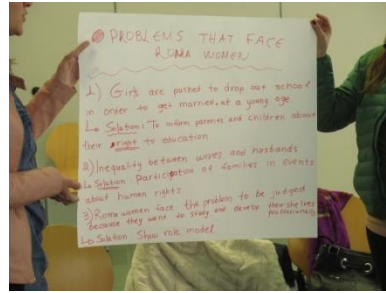 PROBLEMS THAT FACE
ROMA WOMEN
1) Girls are pushed to drop out school
in order to get married at a young age
↳ Solution: To inform parents and children about
their right to education
2) Inequality between wives and husbands
↳ Solution Participation of families in events
about human rights
3) Roma women face the problem to be judged
because they want to study and develop their lives
professionally
↳ Solution Show role model